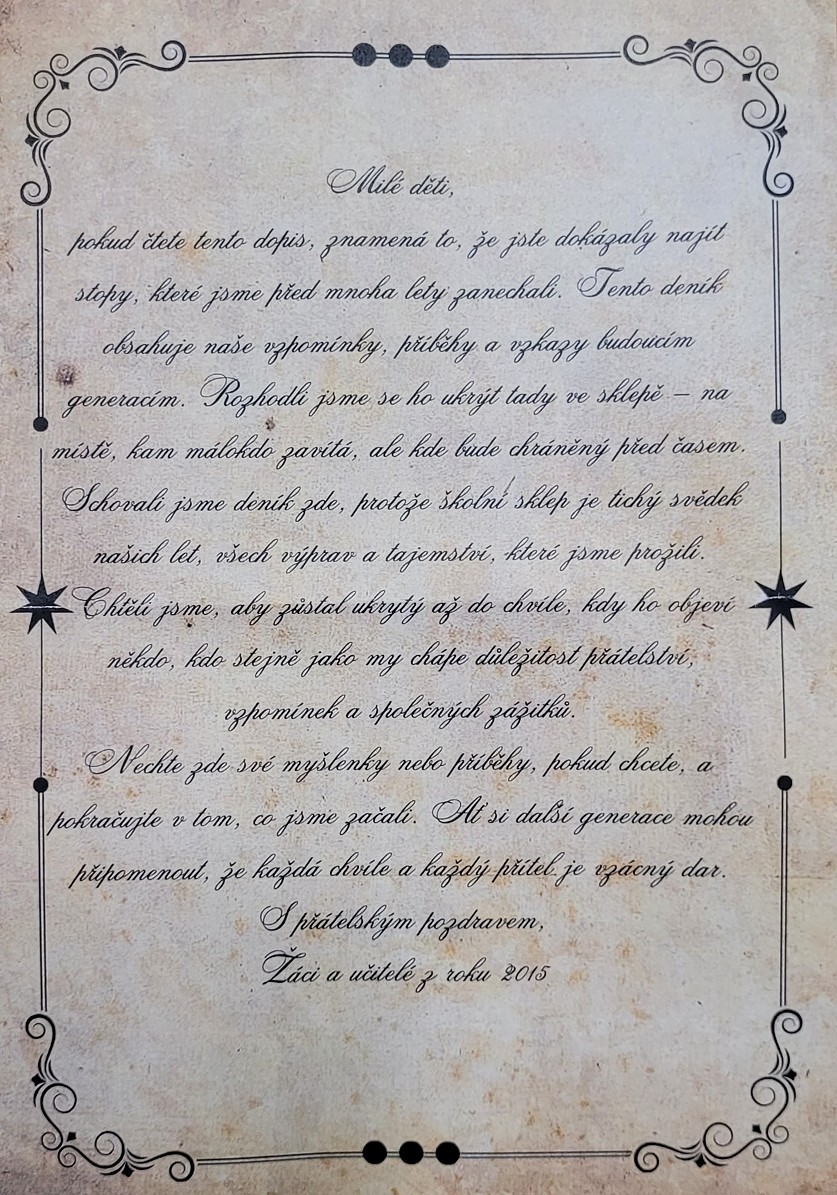 Milé děti,
pokud čtete tento dopis, znamená to, že jste dokázaly najít
stopy, které jsme před mnoha lety zanechali. Tento deník
obsahuje naše vzpomínky, příběhy a vzkazy budoucím
generacím. Rozhodli jsme se ho ukrýt tady ve sklepě – na
místě, kam málokdo zavítá, ale kde bude chráněný před časem.
Schovali jsme deník zde, protože školní sklep je tichý svědek
našich let, všech výprav a tajemství, které jsme prožili.
Chtěli jsme, aby zůstal ukrytý až do chvíle, kdy ho objeví
někdo, kdo stejně jako my chápe důležitost přátelství,
vzpomínek a společných zážitků.
Nechte zde své myšlenky nebo příběhy, pokud chcete, a
pokračujte v tom, co jsme začali. Ať si další generace mohou
připomenout, že každá chvíle a každý přítel je vzácný dar.
S přátelským pozdravem,
Žáci a učitelé z roku 2015